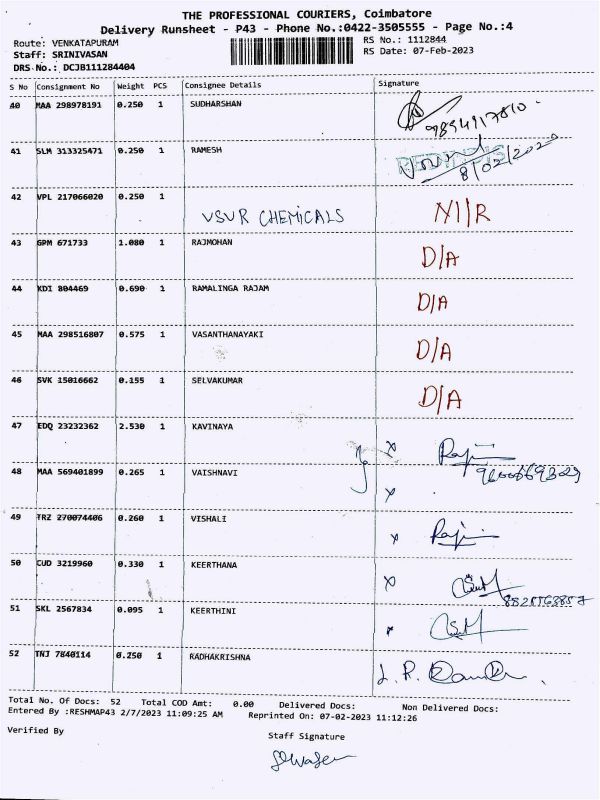 THE PROFESSIONAL COURIERS, Coimbatore
Delivery Runsheet - P43 - Phone No.:0422-3505555 - Page No.:4
Route: VENKATAPURAM
RS No.: 1112844
Staff: SRINIVASAN
RS Date: 07-Feb-2023
DRS No.: DCJB111284404
S No Consignment No Weight PCS Consignee Details Signature
40 MAA 298978191 0.250 1 SUDHARSHAN
41 SLM 313325471 0.250 1 RAMESH
8/02/2020
42 VPL 217066020 0.250 1
VSVR CHEMICALS N/R
43 GPM 671733 1.080 1 RAJMOHAN D/A
44 KDI 804469 0.690 1 RAMALINGA RAJAM D/A
45 MAA 298516807 0.575 1 VASANTHANAYAKI D/A
46 SVK 15016662 0.155 1 SELVAKUMAR D/A
47 EDQ 23232362 2.530 1 KAVINAYA
48 MAA 569401899 0.265 1 VAISHNAVI
49 TRZ 270074406 0.260 1 VISHALI
50 CUD 3219960 0.330 1 KEERTHANA
51 SKL 2567834 0.095 1 KEERTHINI
52 TNJ 7840114 0.250 1 RADHAKRISHNA
Total No. Of Docs: 52 Total COD Amt: 0.00 Delivered Docs: Non Delivered Docs:
Entered By :RESHMAP43 2/7/2023 11:09:25 AM Reprinted On: 07-02-2023 11:12:26
Verified By
Staff Signature